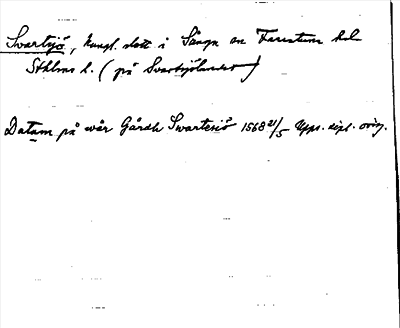 Svartsjö, kungl. slott i Sånga sn Färentuna hd
Sthlms l. (på Svartsjölandet)
Datum på wår Gårdh Swartesiö 1568 21/5 Upps. dipl. orig.